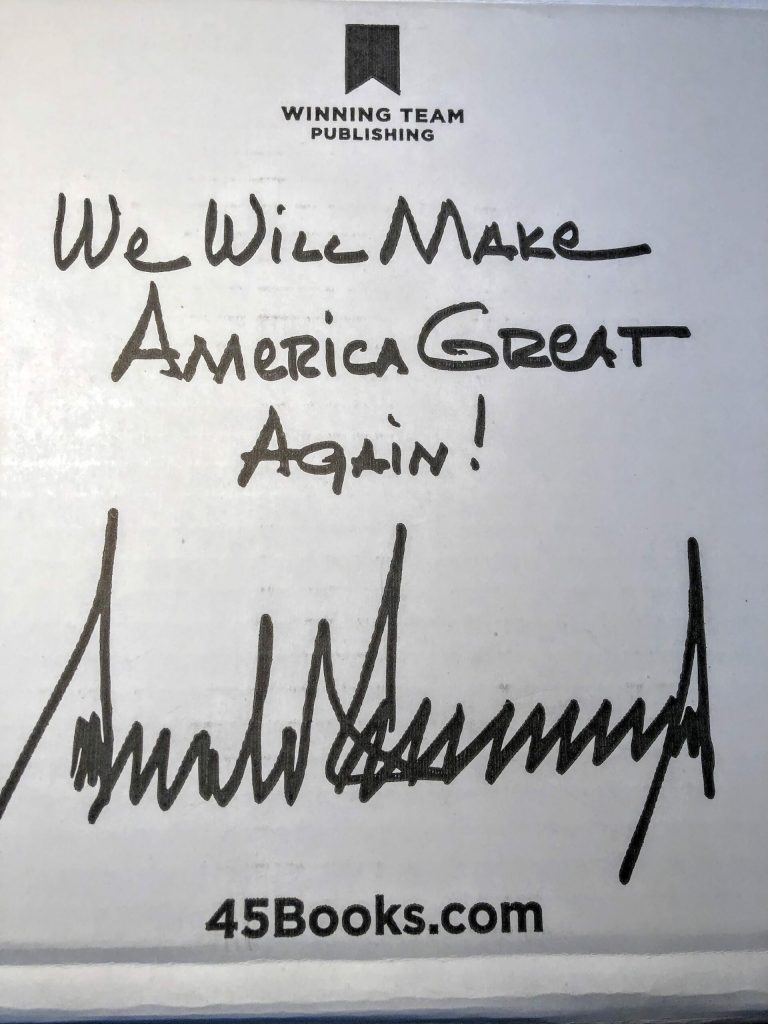 WINNING TEAM
PUBLISHING
We Will Make
America Great
Again!
45Books.com